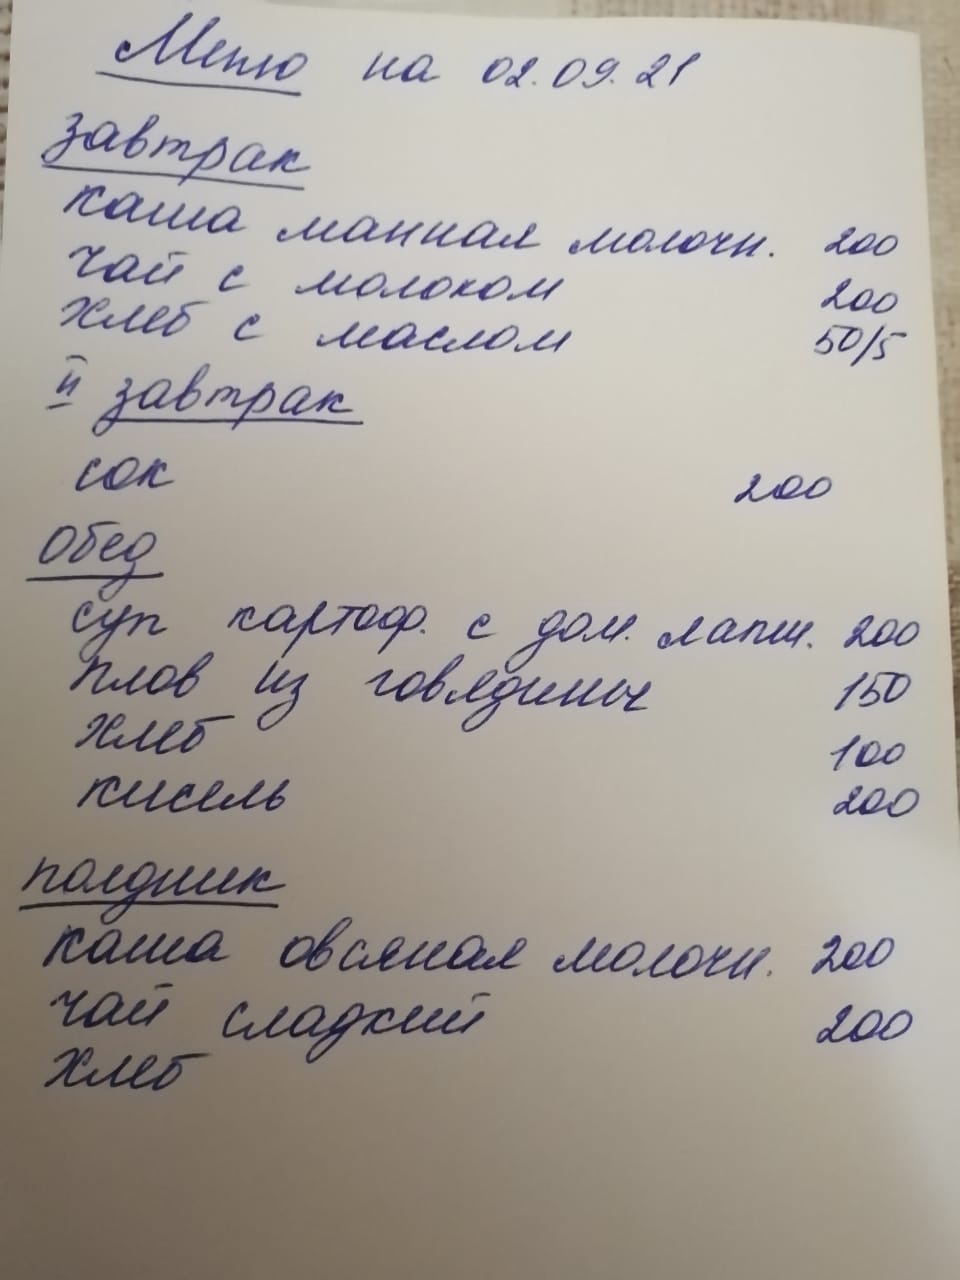 Меню на 02.09.21
завтрак
каша манная молочн. 200
чай с молоком 200
хлеб с маслом 50/5
II завтрак
сок 200
Обед
суп картоф. с дом. лапш. 200
плов из говядины 150
хлеб 100
кисель 200
полдник
каша овсяная молочн. 200
чай сладкий 200
хлеб